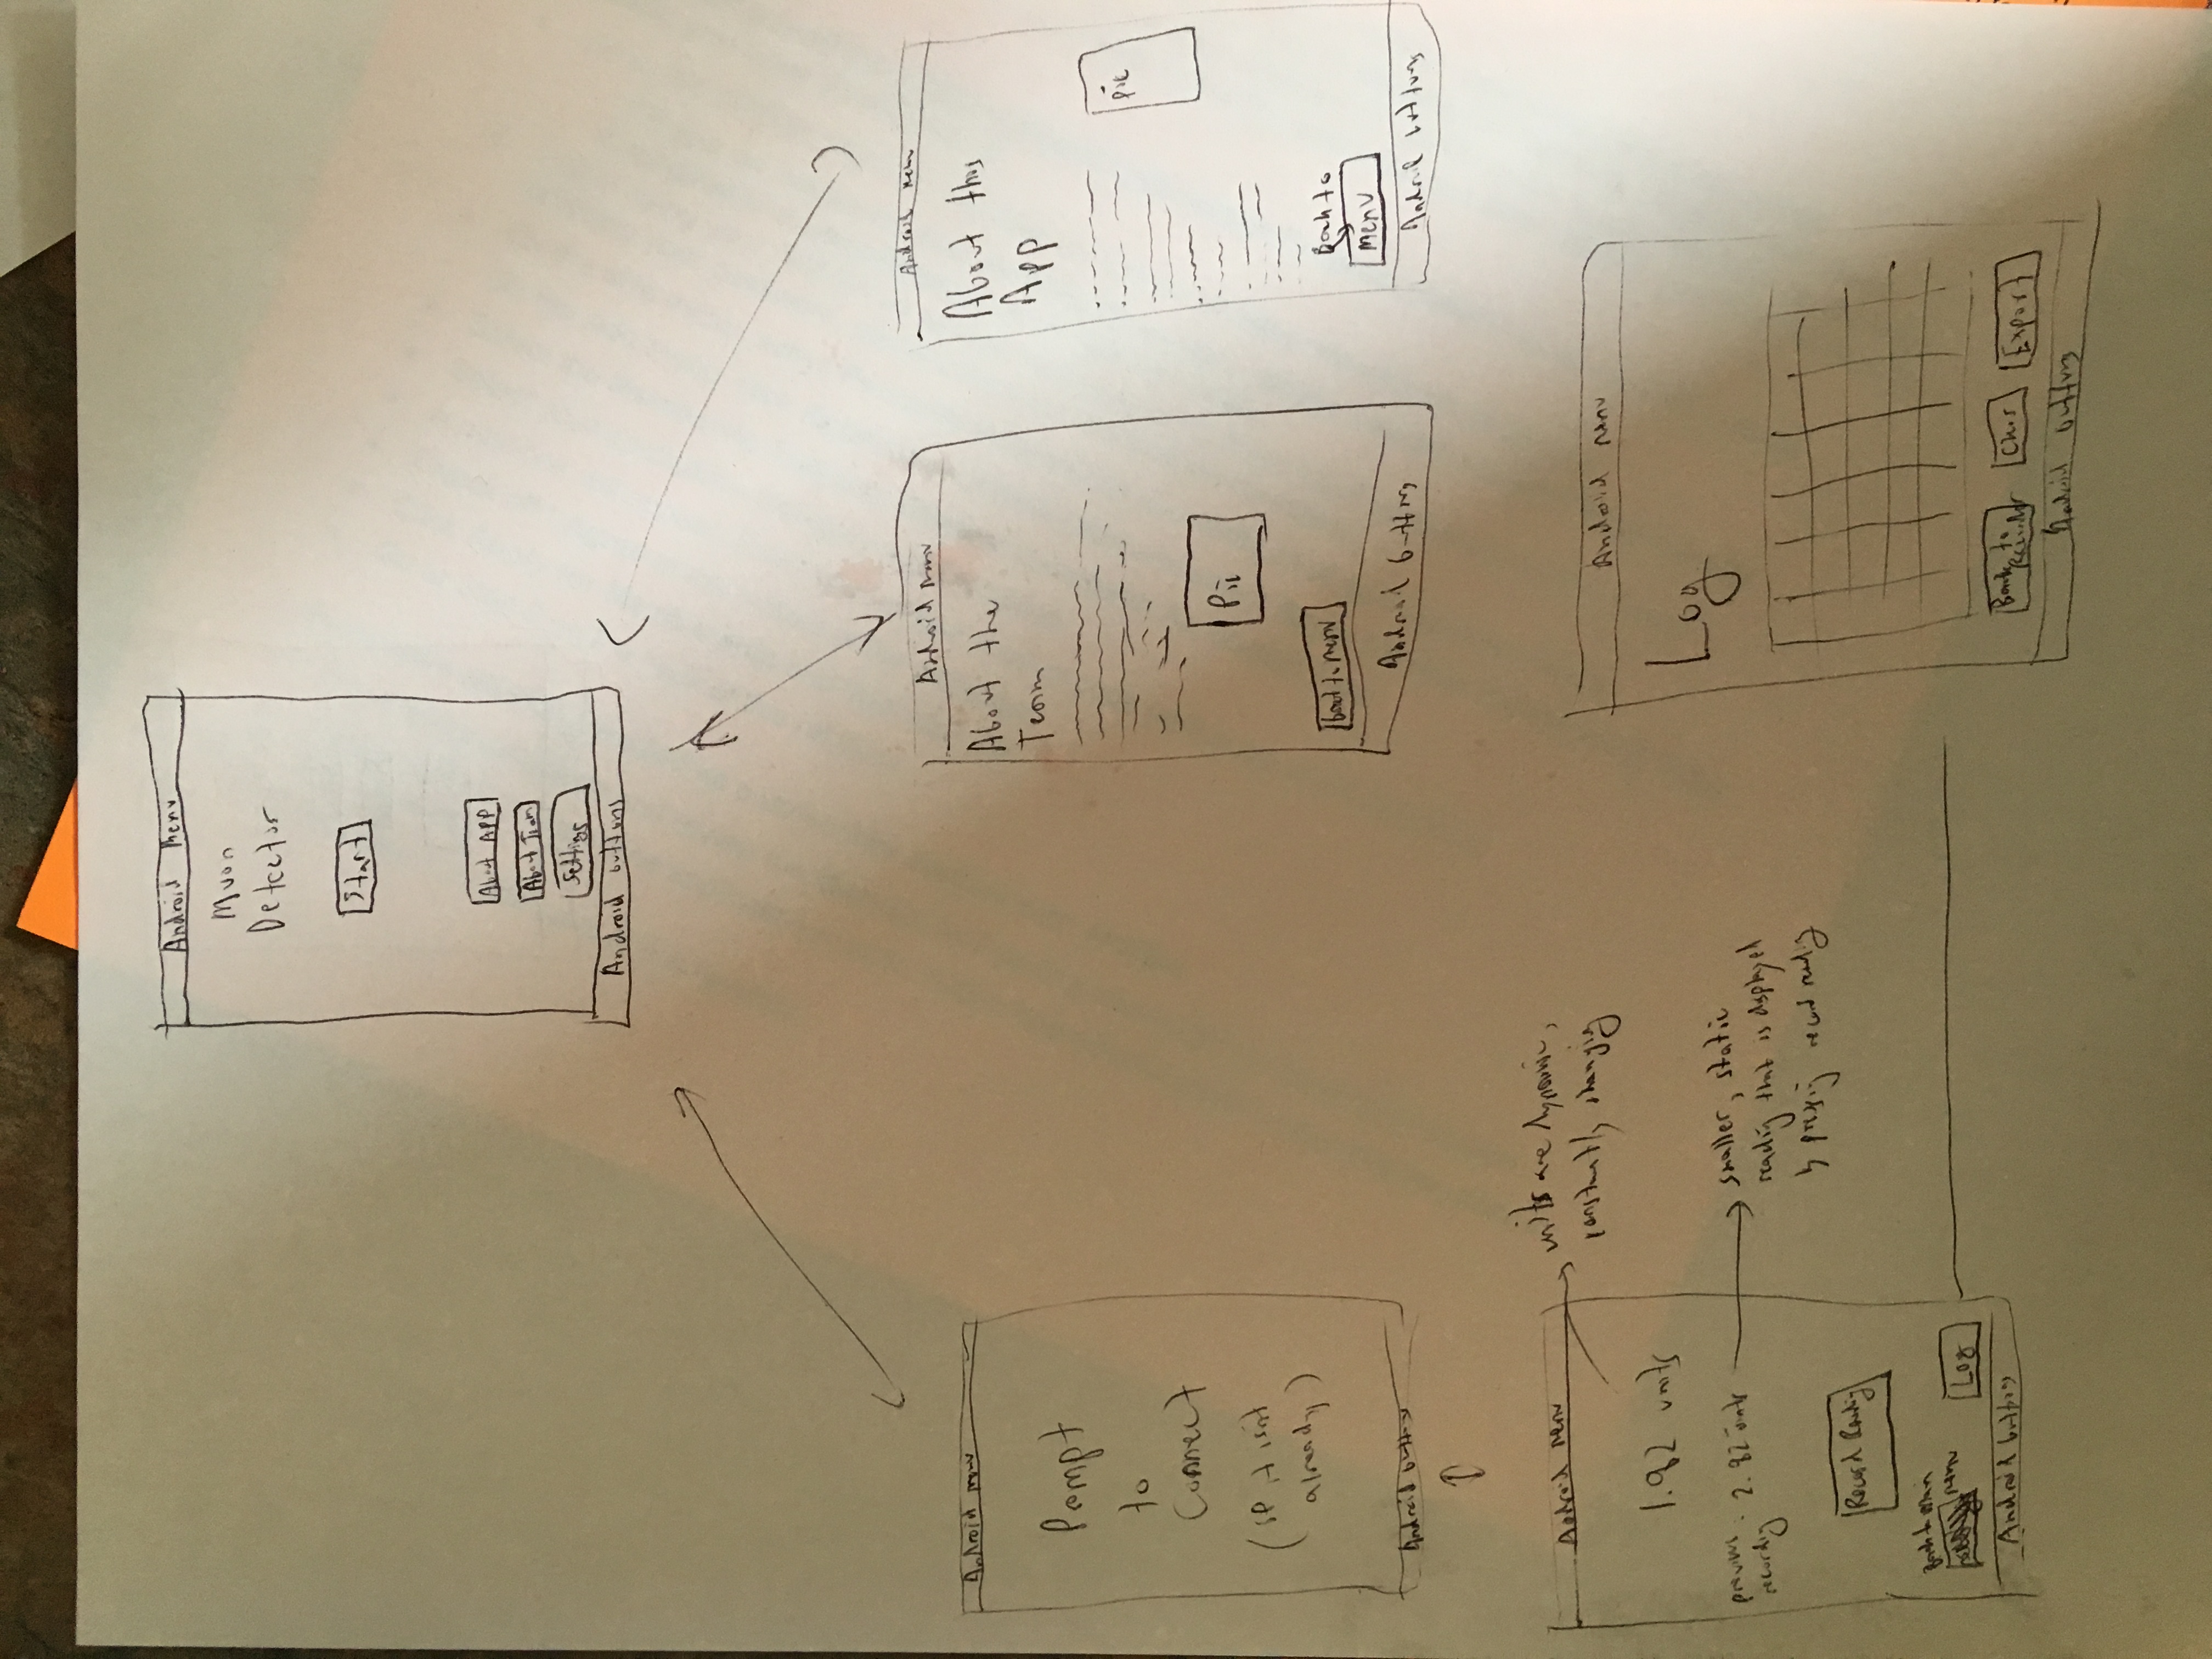 Android Menu
Muon
Detector
Start
About APP
About Team
Settings
Android buttons
Android menu
Prompt
to
Connect
(if it isn't
already)
Android buttons
Android menu
About the
Team
Pic
back to menu
Android buttons
Android menu
About this
App
Pic
Back to
menu
Android buttons
Android menu
units are dynamic,
constantly changing
1.82 units
previous
recording: 2.82 units
smaller, static
reading that is displayed
by pressing record reading
Record Reading
Back to Main
menu
Log
Android buttons
Android menu
Log
Back to
Export
Android buttons